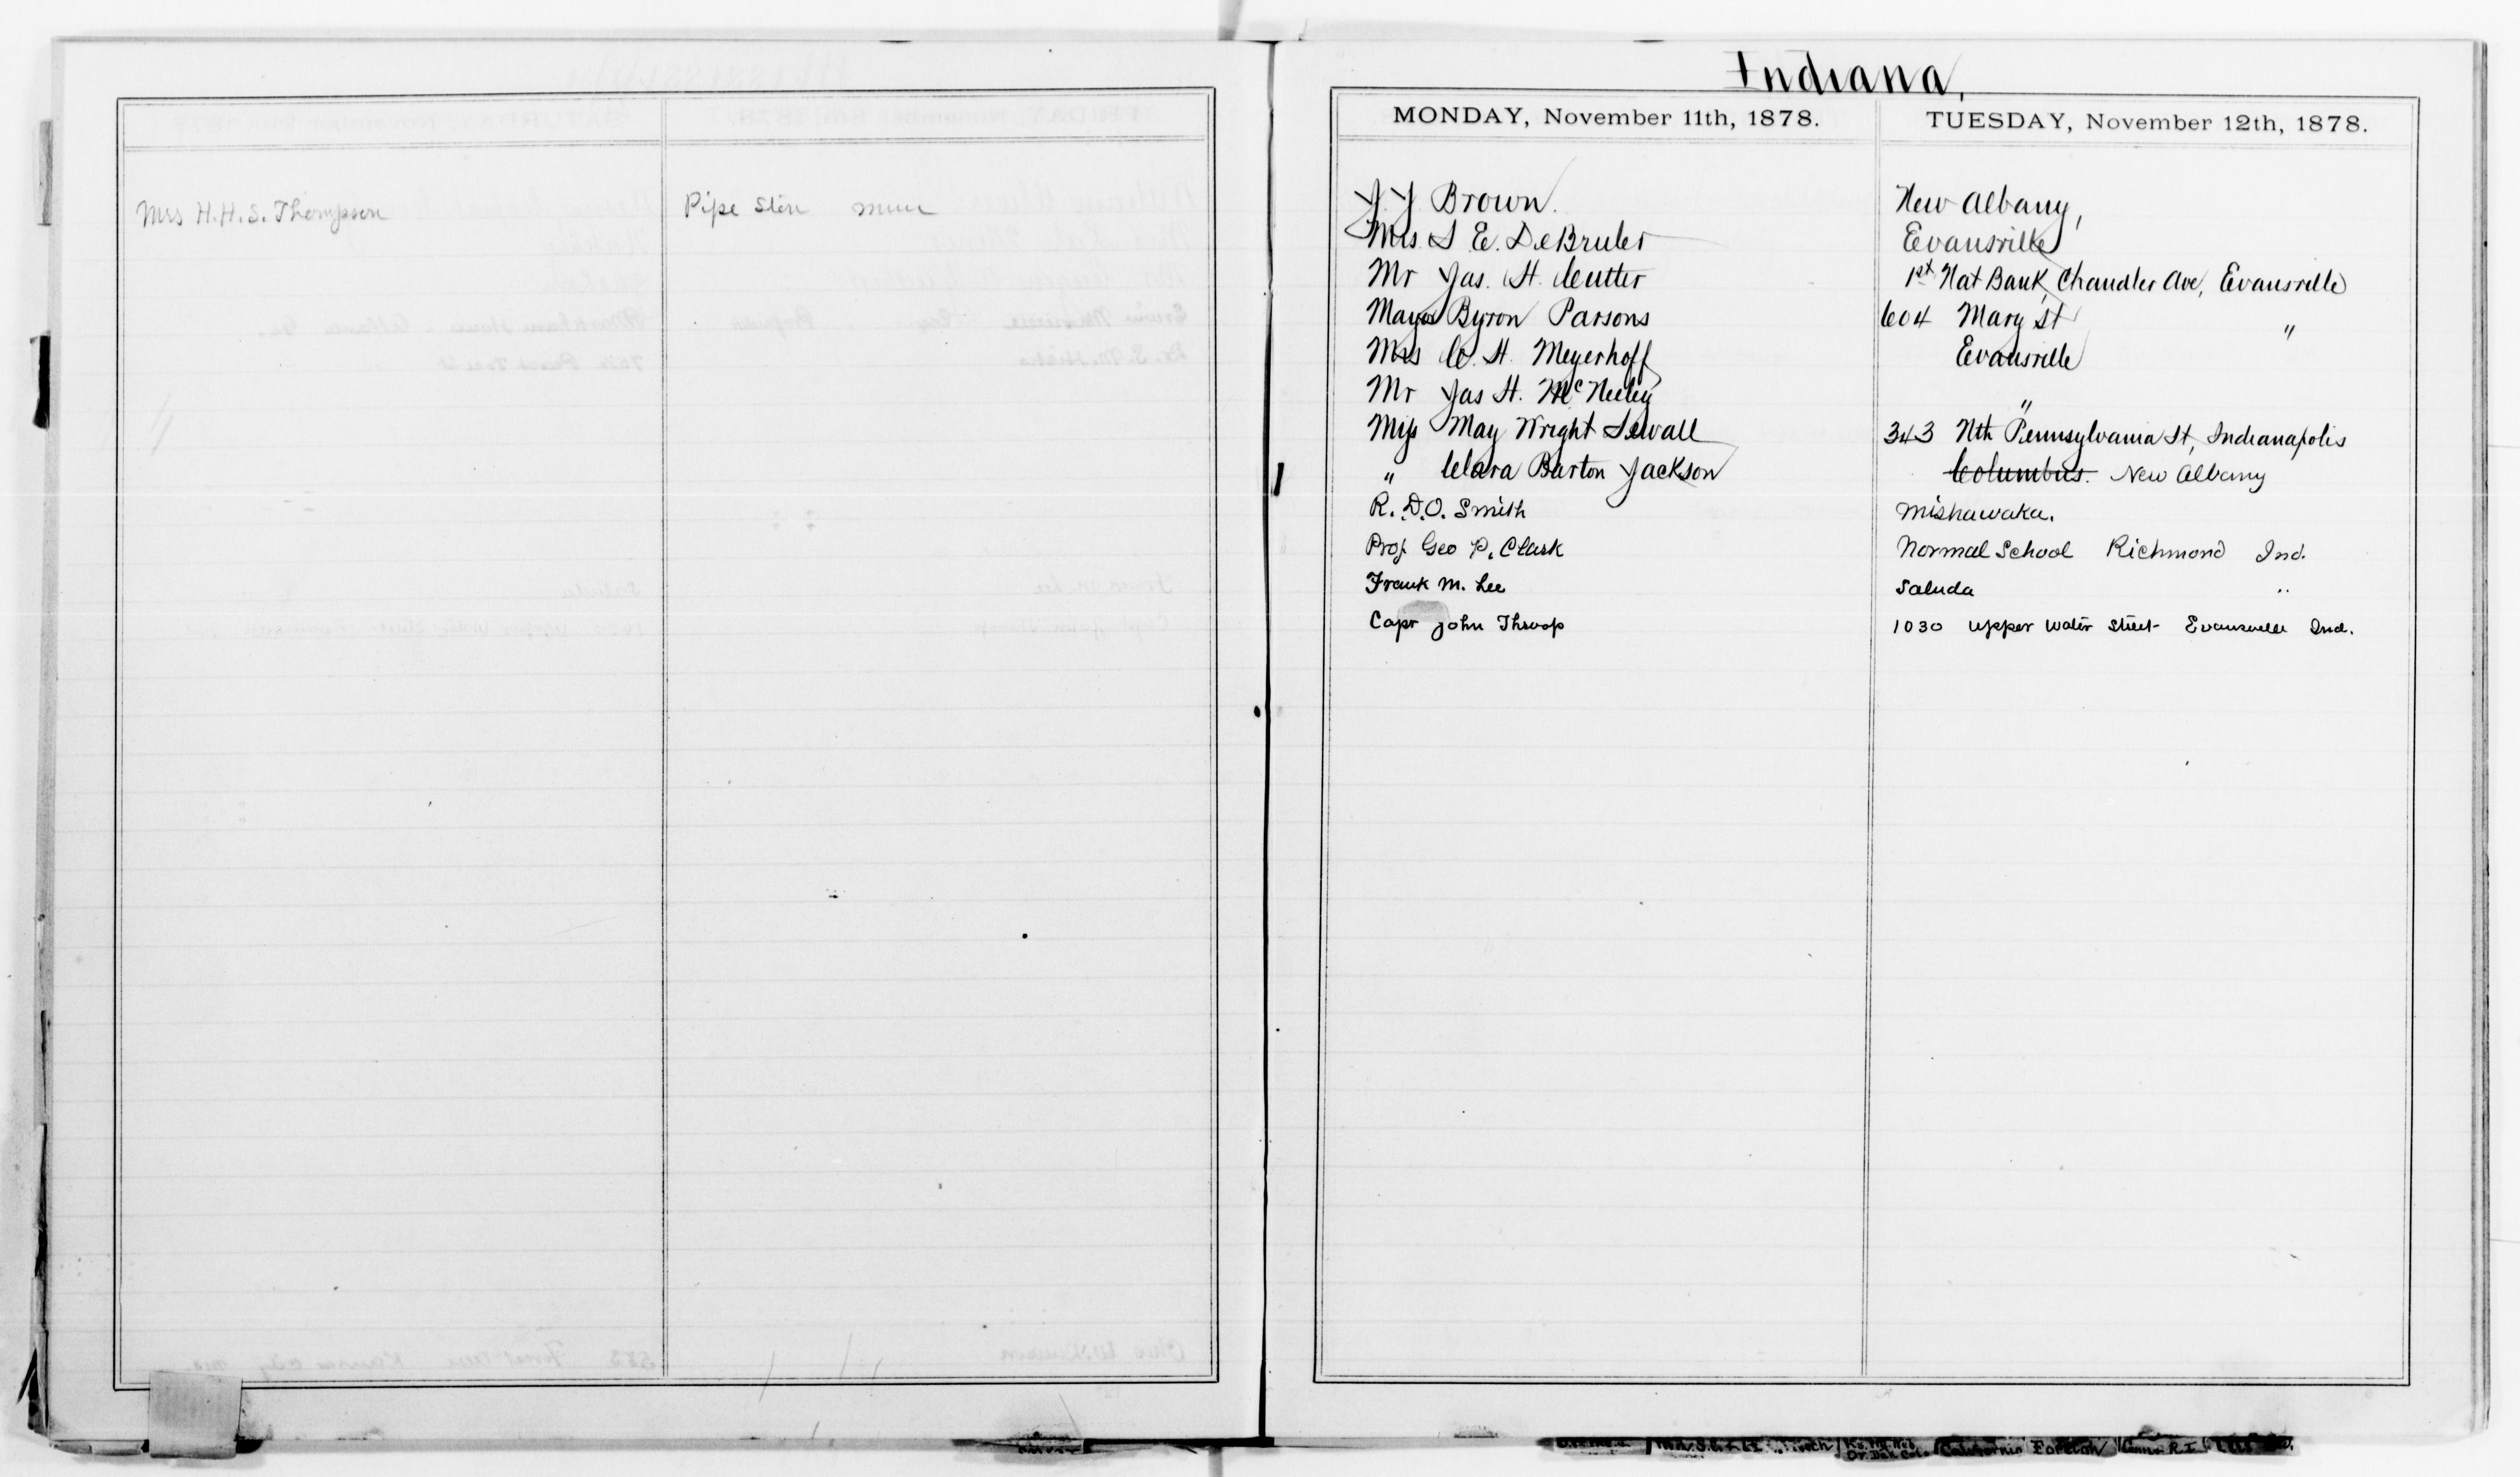 Mrs H.H.S. Thompson Pipe Stem
Indiana,
MONDAY, November 11th, 1878. TUESDAY, November 12th, 1878.
J. J. Brown. New Albany,
Mrs. S. E. DeBruler Evansville
Mr Jas. H. Cutter 1st Nat Bank, Chandler Ave, Evansville
Mayor Byron Parsons 604 Mary St "
Mrs C. H. Meyerhoff Evansville
Mr Jas H. McNeeley "
Miss May Wright Sewall 343 Nth Pennsylvania St, Indianapolis
" Clara Barton Jackson Columbus. New Albany
R. D. O. Smith Mishawaka.
Prof. Geo P. Clark Normal School Richmond Ind.
Frank M. Lee Saluda "
Capt John Throop 1030 Upper Water Street Evansville Ind.
California Foreign Conn. R.I.